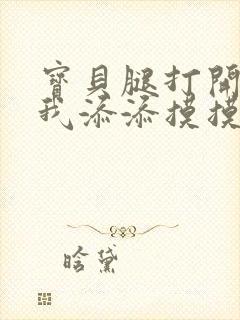 寶貝腿打開
我添添摸摸
晗黛